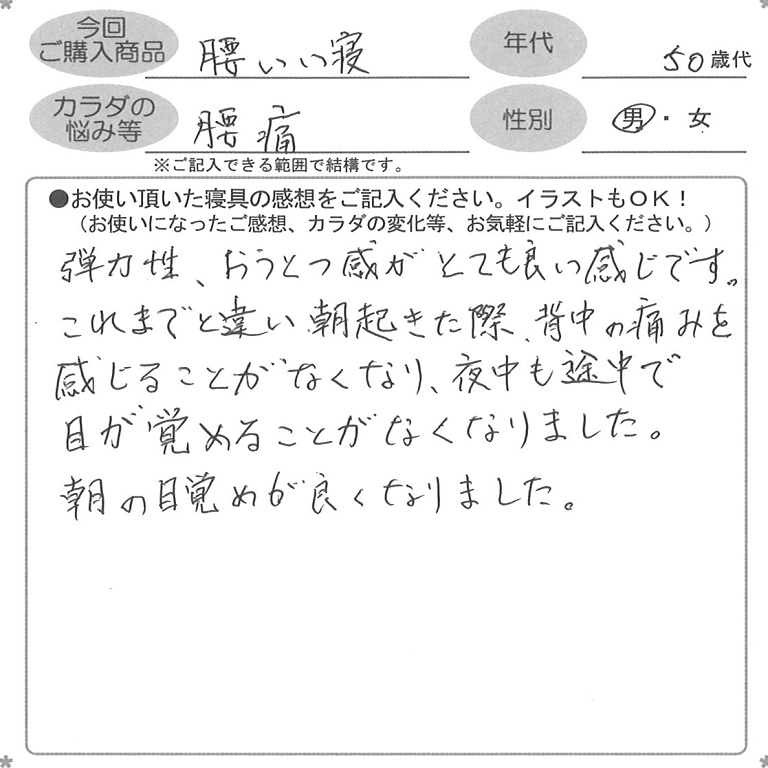 今回
ご購入商品
腰いい寝
年代
50歳代
カラダの
悩み等
腰痛
性別
男・女
※ご記入できる範囲で結構です。
●お使い頂いた寝具の感想をご記入ください。イラストもOK！
（お使いになったご感想、カラダの変化等、お気軽にご記入ください。）
弾力性、おうとつ感がとても良い感じです。
これまでと違い朝起きた際、背中の痛みを
感じることがなくなり、夜中も途中で
目が覚めることがなくなりました。
朝の目覚めが良くなりました。